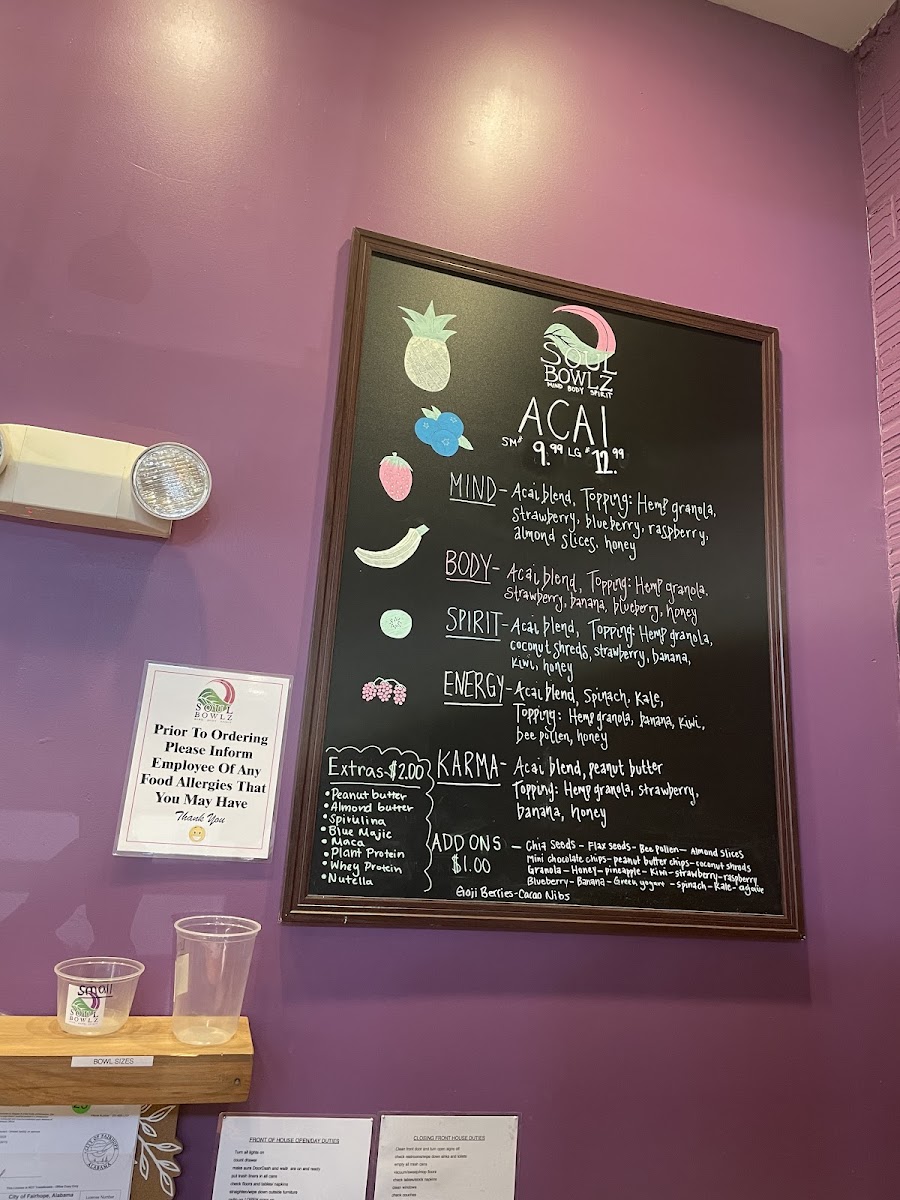 SOUL
BOWLZ
MIND BODY SPIRIT
ACAI
SM $9.99 LG $12.99
MIND - Acai blend, Topping: Hemp granola,
strawberry, blueberry, raspberry,
almond slices, honey
BODY - Acai blend, Topping: Hemp granola,
strawberry, banana, blueberry, honey
SPIRIT - Acai blend, Topping: Hemp granola,
coconut shreds, strawberry, banana,
kiwi, honey
ENERGY - Acai blend, Spinach, Kale,
Topping: Hemp granola, banana, kiwi,
bee pollen, honey
KARMA - Acai blend, peanut butter
Topping: Hemp granola, strawberry,
banana, honey
Extras-$2.00
• Peanut butter
• Almond butter
• Spirulina
• Blue Majic
• Maca
• Plant Protein
• Whey Protein
• Nutella
ADD ONS $1.00 - Chia Seeds - Flax seeds - Bee Pollen - Almond slices
Mini chocolate chips - peanut butter chips - coconut shreds
Granola - Honey - pineapple - Kiwi - strawberry - raspberry
Blueberry - Banana - Green yogurt - spinach - Kale - agave
Goji Berries - Cacao Nibs
SOUL
BOWLZ
Prior To Ordering
Please Inform
Employee Of Any
Food Allergies That
You May Have
Thank You
small
SOUL
BOWLZ
BOWL SIZES
CITY OF FAIRHOPE
ALABAMA
City of Fairhope, Alabama
License Number
FRONT OF HOUSE OPEN/DAY DUTIES
Turn all lights on
count drawer
make sure DoorDash and waitr are on and ready
put trash liners in all cans
check floors and tables/ napkins
straighten/wipe down outside furniture
CLOSING FRONT HOUSE DUTIES
empty all trash cans
vacuum/sweep/mop floors
check tables/stock napkins
clean windows
check counters